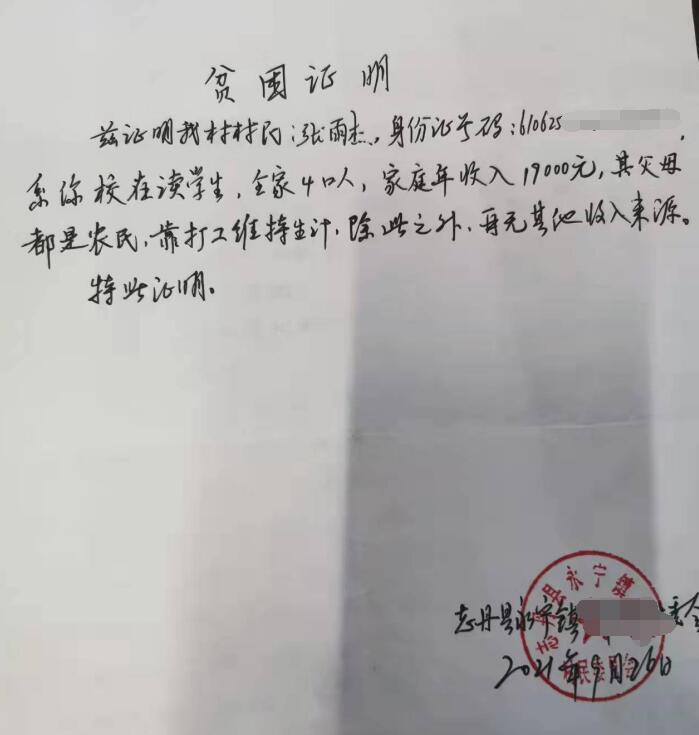 贫困证明
兹证明我村村民:张雨杰,身份证号码:610625
系你校在读学生,全家4口人,家庭年收入19000元,其父母
都是农民,靠打工维持生计,除此之外,再无其他收入来源。
特此证明。
志丹县永宁镇
志丹县永宁镇 委会
村民委员会
2021年9月26日